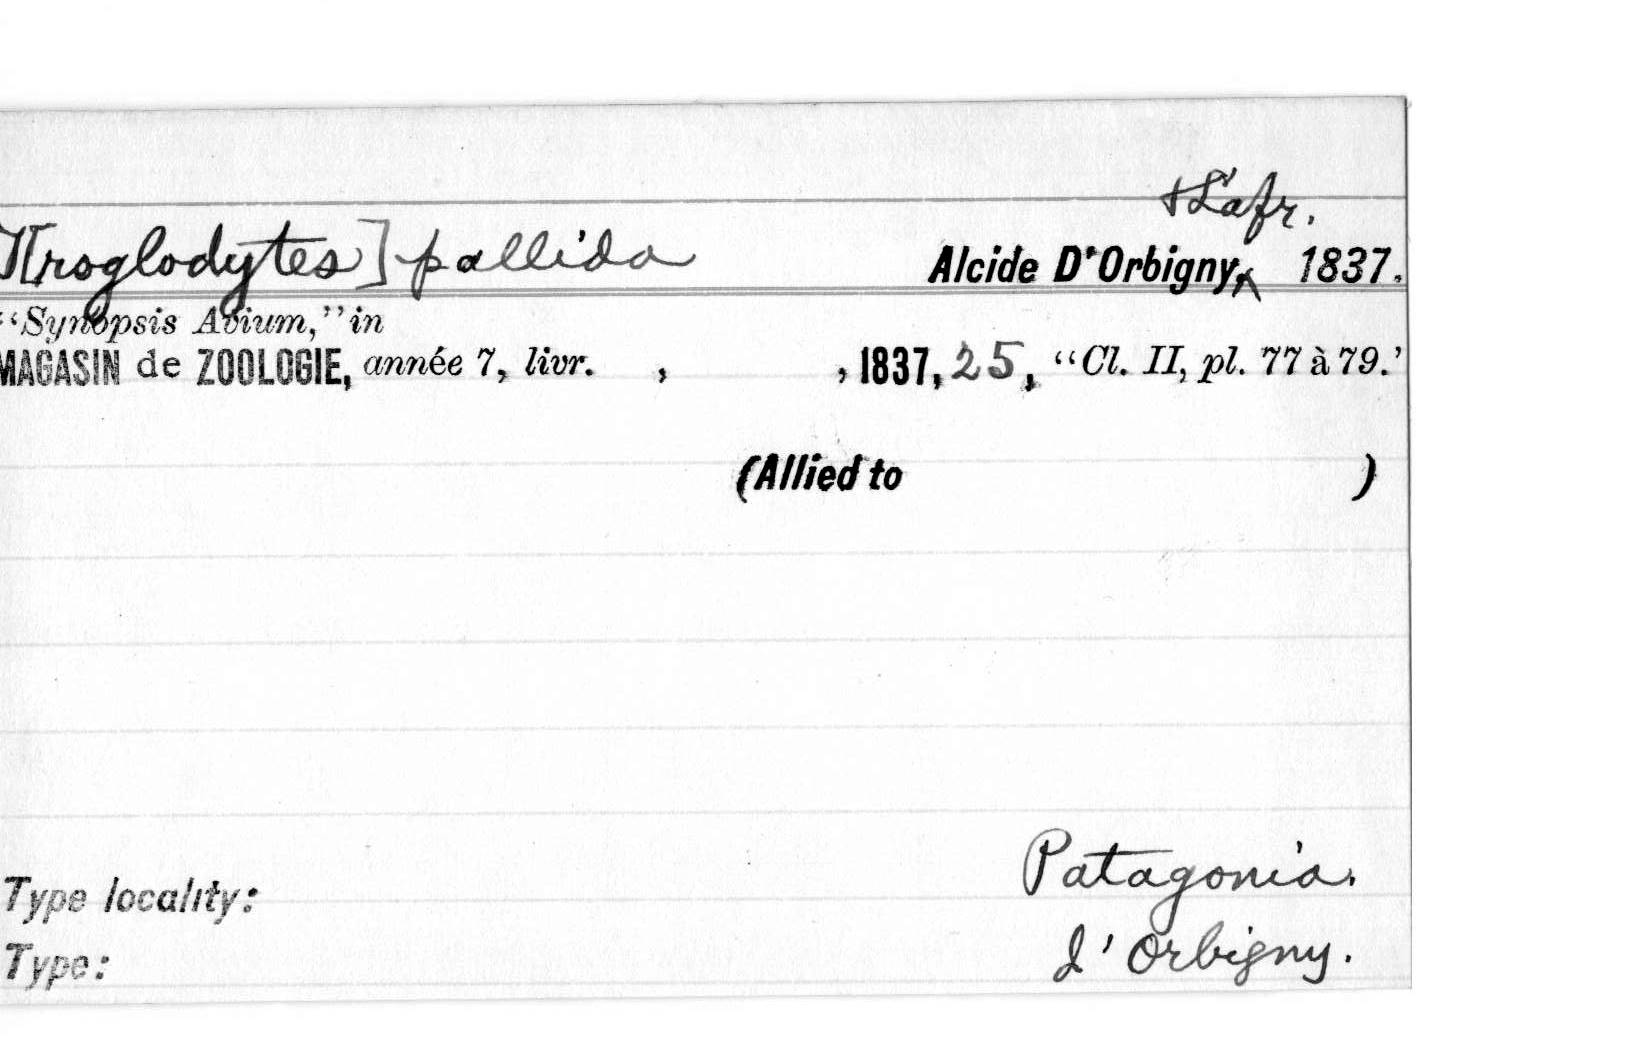 & Lafr.
T[roglodytes] pallida Alcide D'Orbigny, ^ 1837.
"Synopsis Avium," in
MAGASIN de ZOOLOGIE, année 7, livr. , , 1837, 25, "Cl. II, pl. 77 à 79.'
(Allied to )
Patagonia.
Type locality:
d'Orbigny.
Type: